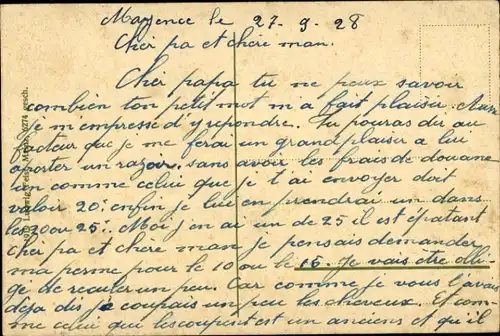 Mayence le 27-9-28
Cher pa et chere man.
Cher papa tu ne peux savoir
combien ton petit mot m'a fait plaisir. Aussi
je m'empresse d'y repondre. Tu pouras dir au
facteur que je me ferai un grand plaisir a lui
aporter un razoir. sans avoir les frais de douane
un comme celui que je t'ai envoyer doit
valoir 20. enfin je lui en prendrai un dans
les 20 ou 25. Moi j'en ai un de 25 il est épatant
Cher pa et chere man je pensais demander
ma perme pour le 10 ou le 15. Je vais être obli-
gé de reculer un peu. Car comme je vous l'avais
déja dis je coupais un peu les cheveux. Et com-
me celui qui les coupait est un anciens et qu'il
9274 gesch.